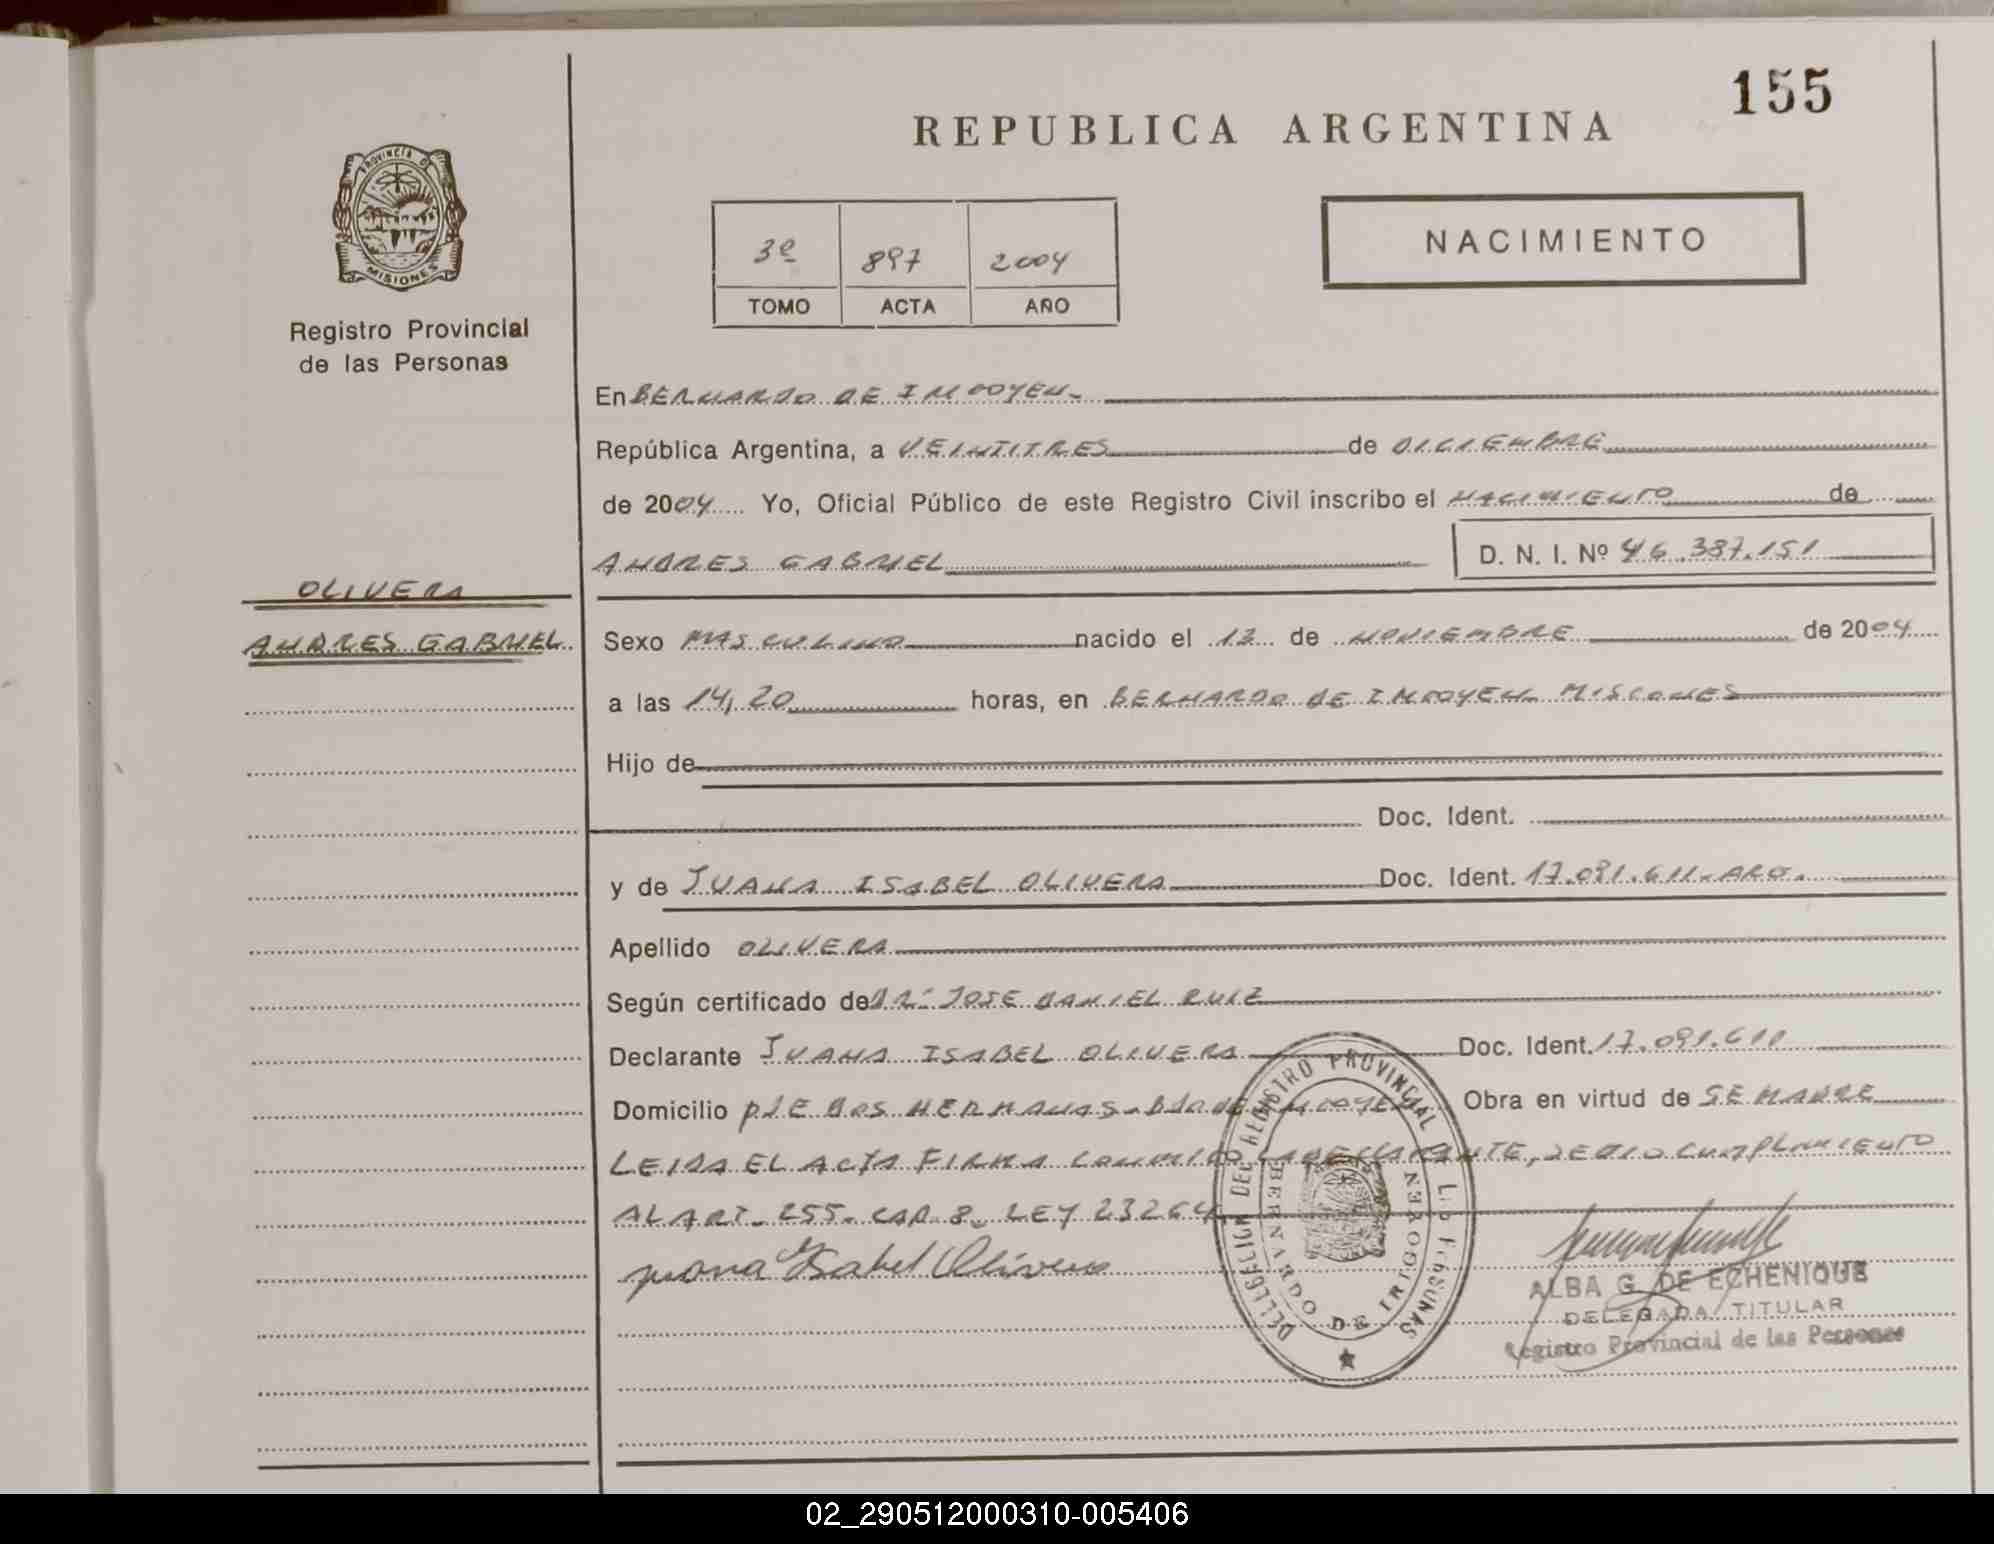 155
REPUBLICA ARGENTINA
PROVINCIA D
MISIONES
Registro Provincial
de las Personas
NACIMIENTO
3º 897 2004
TOMO ACTA AÑO
En BERNARDO DE IRIGOYEN.
República Argentina, a VEINTITRES de DICIEMBRE
de 2004 Yo, Oficial Público de este Registro Civil inscribo el NACIMIENTO de
ANDRES GABRIEL D. N. I. Nº 46.387.151
OLIVERA
ANDRES GABRIEL
Sexo MASCULINO nacido el 12 de NOVIEMBRE de 2004
a las 14,20 horas, en BERNARDO DE IRIGOYEN MISIONES
Hijo de
Doc. Ident.
y de JUANA ISABEL OLIVERA Doc. Ident. 17.091.611-ARG.
Apellido OLIVERA
Según certificado de DR. JOSE DANIEL RUIZ
Declarante JUANA ISABEL OLIVERA Doc. Ident. 17.091.611
Domicilio PJE DOS HERMANAS. BDO DE IRIGOYEN Obra en virtud de SE MADRE
LEIDA EL ACTA FIRMA CONMIGO LA DECLARANTE, SE DIO CUMPLIMIENTO
AL ART. 255. CAP. 8. LEY 23264
Juana Isabel Olivera
DELEGACION DEL REGISTRO PROVINCIAL DE LAS PERSONAS
BERNARDO DE IRIGOYEN
ALBA G. DE ECHENIQUE
DELEGADA TITULAR
Registro Provincial de las Personas
02_290512000310-005406